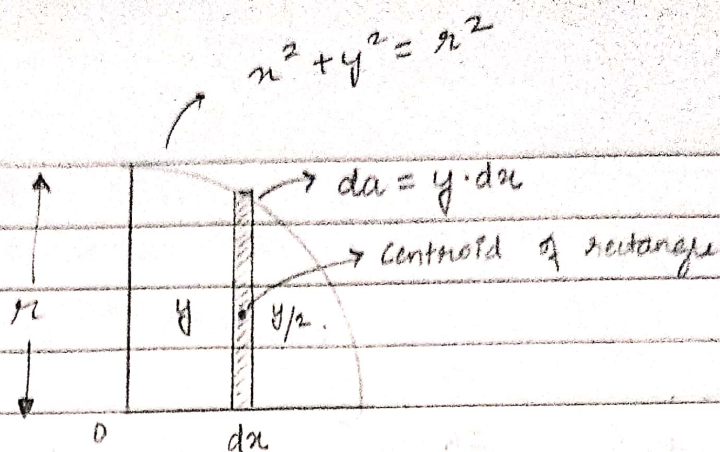 x² + y² = r²
da = y·dx
centroid of rectangle
r
y
y/2.
0
dx